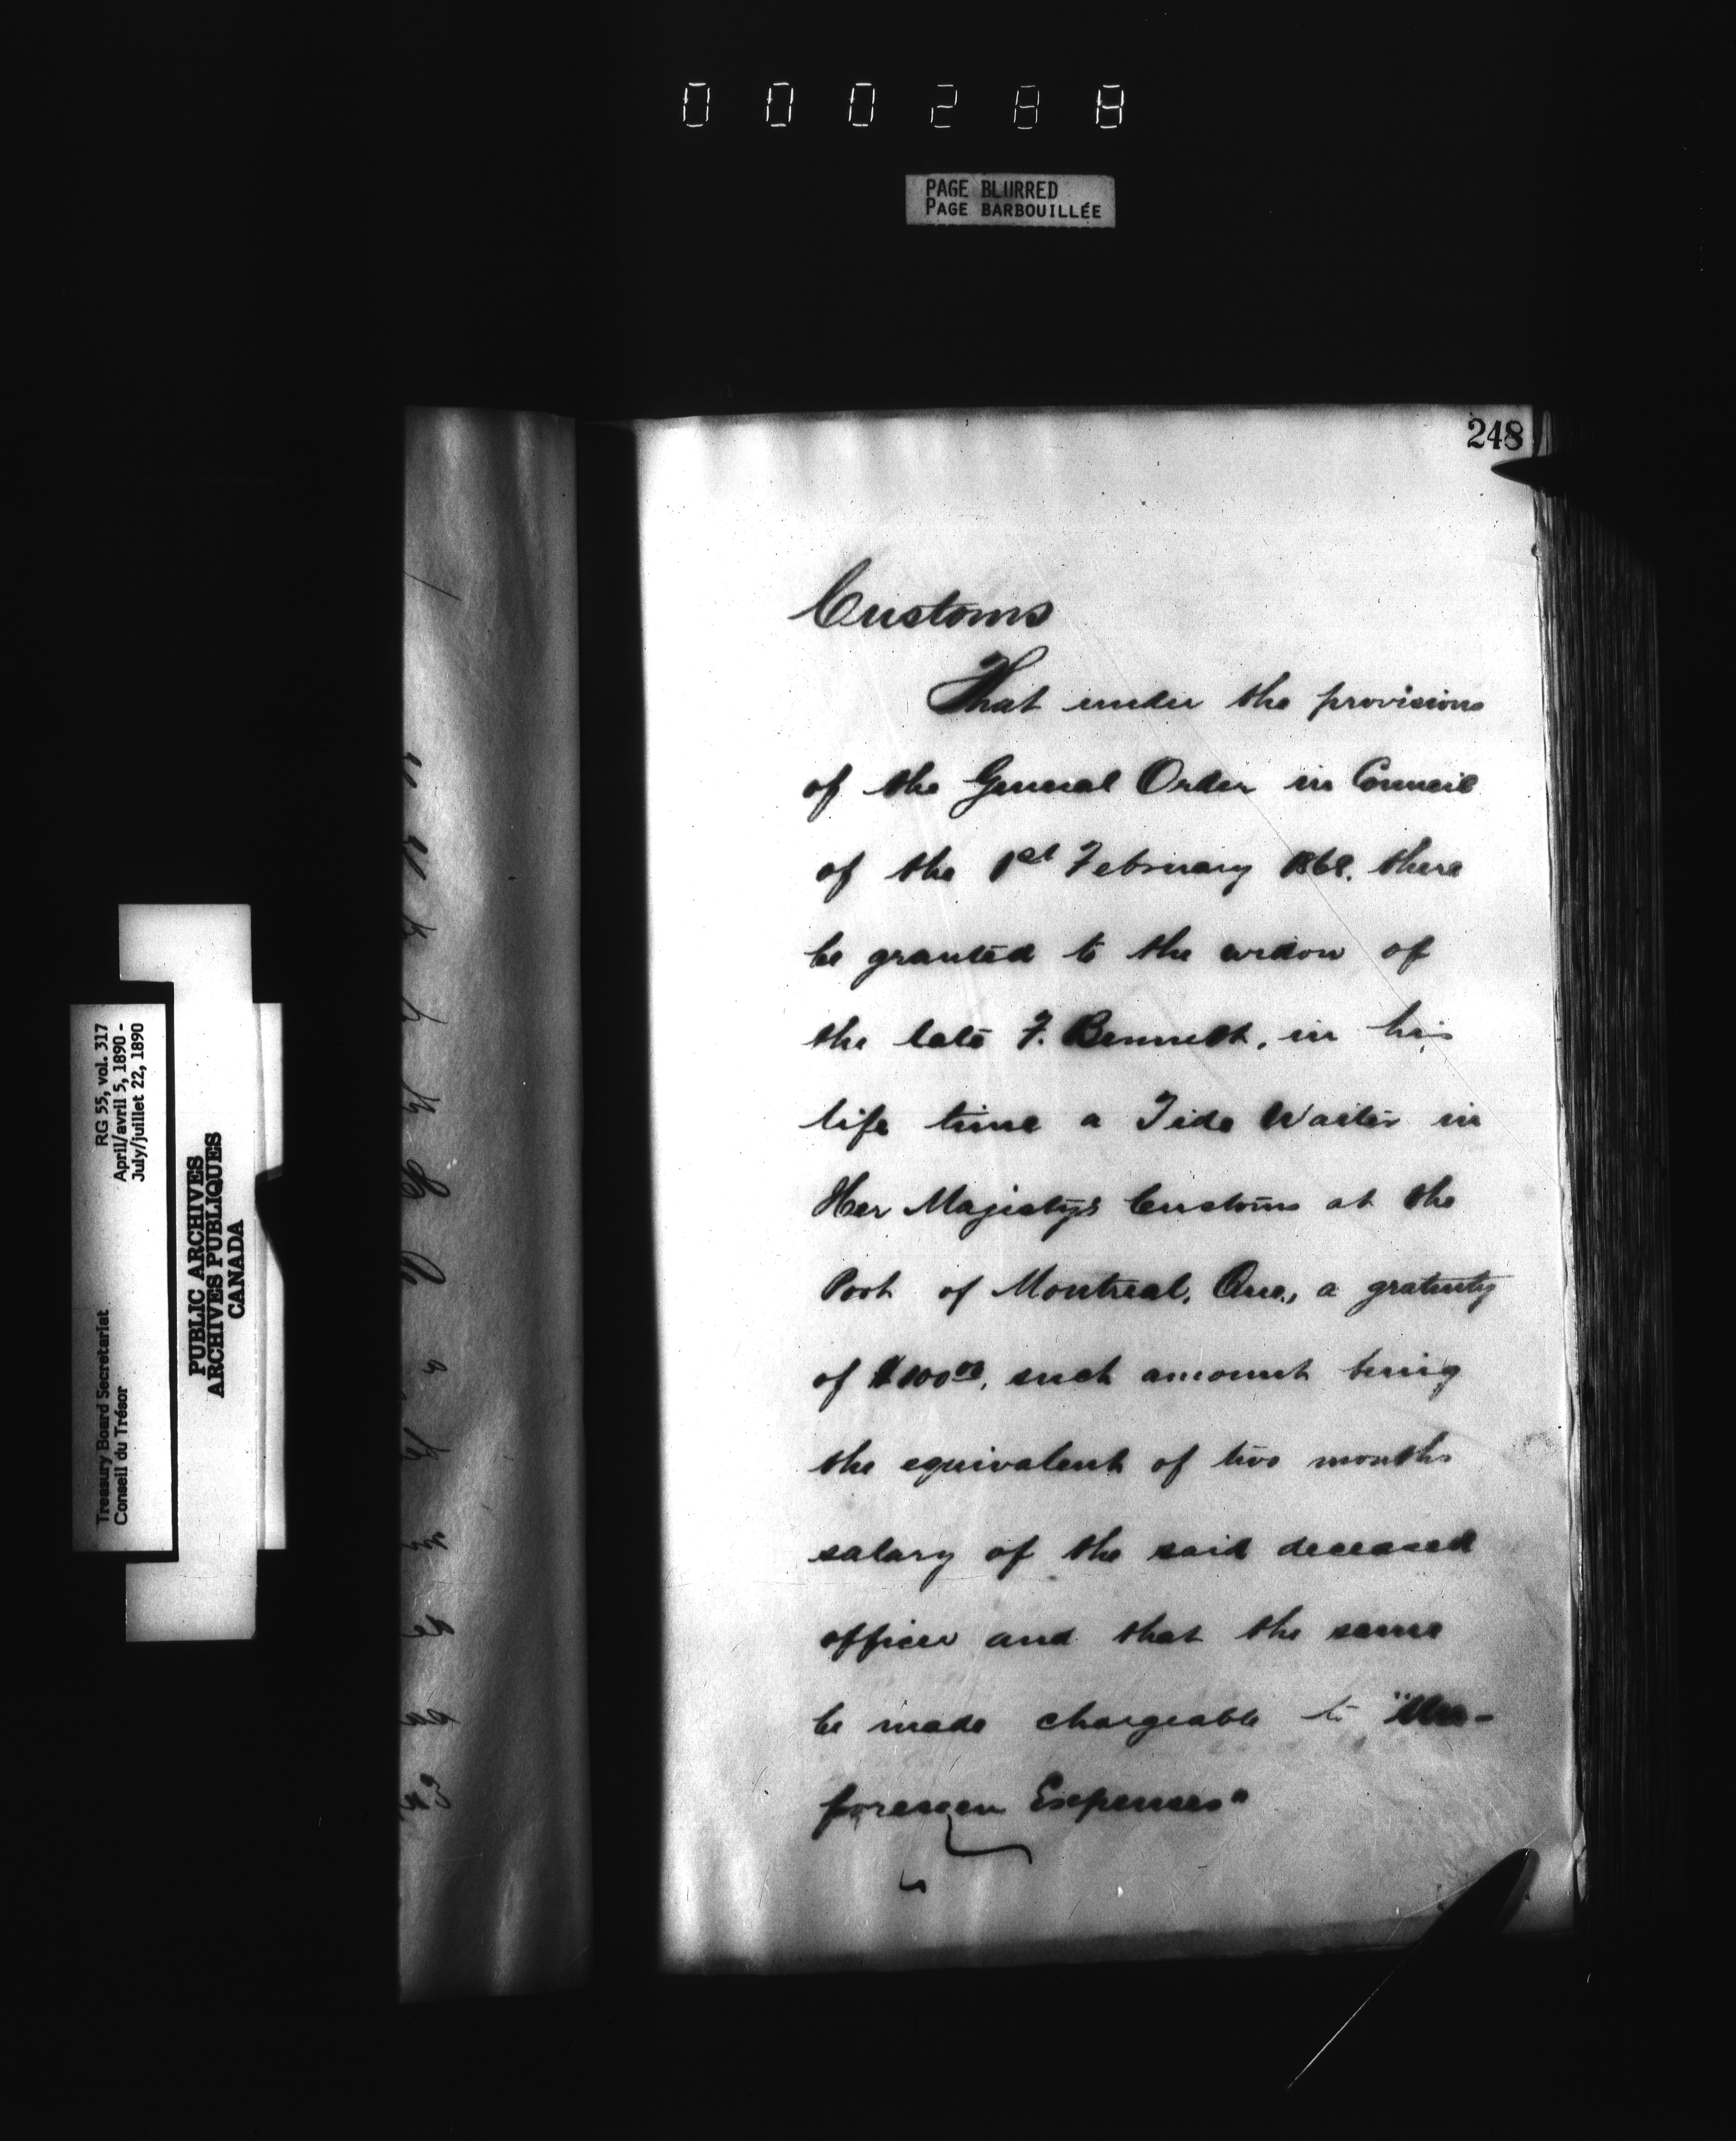 000288
PAGE BLURRED
PAGE BARBOUILLÉE
248
Customs
That under the provisions
of the General Order in Council
of the 1st February 1868. there
be granted to the widow of
the late F. Bennett, in his
life time a Tide Waiter in
Her Majesty's Customs at the
Port of Montreal, Que., a gratuity
of $100.00, such amount being
the equivalent of two months
salary of the said deceased
officer and that the same
be made chargeable to "Un-
foreseen Expenses"
RG 55, vol. 317
April/avril 5, 1890 -
July/juillet 22, 1890
Treasury Board Secretariat
Conseil du Trésor
PUBLIC ARCHIVES
ARCHIVES PUBLIQUES
CANADA